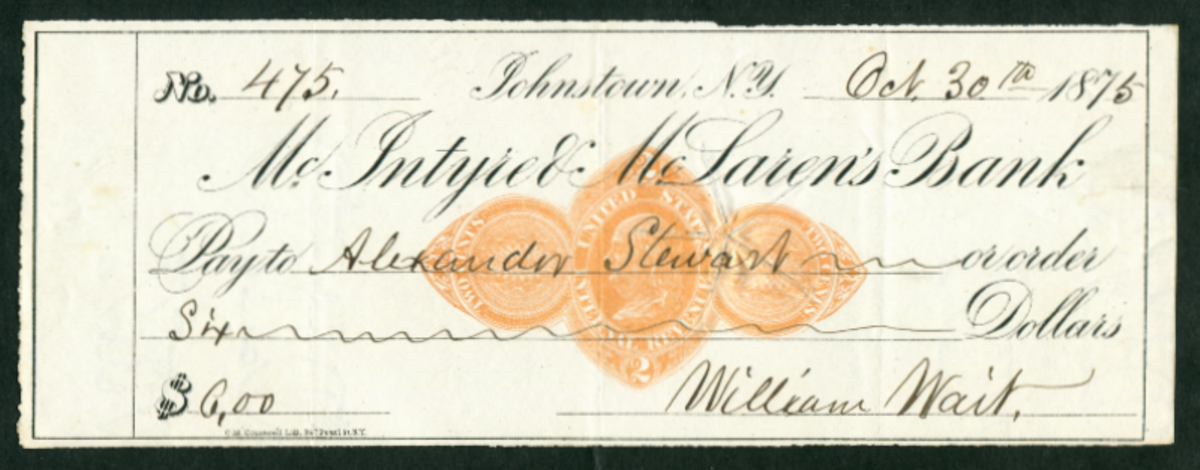 No. 475. Johnstown, N.Y. Oct. 30th 1875
Mc. Intyre & Mc Laren's Bank
Pay to Alexander Stewart or order
Six Dollars
$ 6,00 William Wait.
TWO CENTS UNITED STATES INTERNAL REVENUE TWO CENTS
2